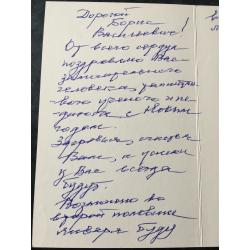 Дорогой
Борис
Васильевич!
От всего сердца
поздравляю Вас
замечательного
человека, талантли
вого ученого и пе
дагога с Новым
годом.
Здоровья, счастья
Вам, а успехи
у Вас всегда
будут.
Возможно во
второй половине
января буду